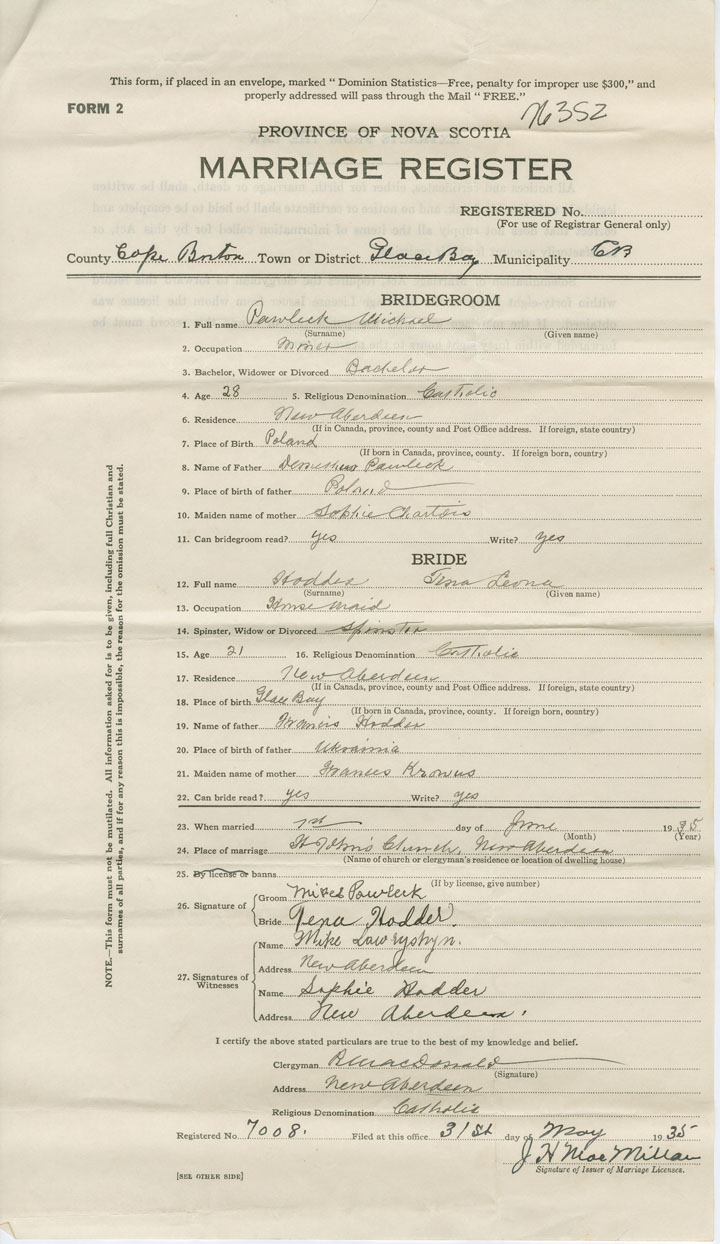 This form, if placed in an envelope, marked "Dominion Statistics—Free, penalty for improper use $300," and
properly addressed will pass through the Mail "FREE."
FORM 2
76352
PROVINCE OF NOVA SCOTIA
MARRIAGE REGISTER
REGISTERED No.
(For use of Registrar General only)
County Cape Breton Town or District Glace Bay Municipality CB
BRIDEGROOM
1. Full name Pawleck Michael
(Surname) (Given name)
2. Occupation Miner
3. Bachelor, Widower or Divorced Bachelor
4. Age 28 5. Religious Denomination Catholic
6. Residence New Aberdeen
(If in Canada, province, county and Post Office address. If foreign, state country)
7. Place of Birth Poland
(If born in Canada, province, county. If foreign born, country)
8. Name of Father Pawleck
9. Place of birth of father Poland
10. Maiden name of mother Sophie Chartois
11. Can bridegroom read? yes Write? yes
BRIDE
12. Full name Hodder Tena Leona
(Surname) (Given name)
13. Occupation House Maid
14. Spinster, Widow or Divorced Spinster
15. Age 21 16. Religious Denomination Catholic
17. Residence New Aberdeen
(If in Canada, province, county and Post Office address. If foreign, state country)
18. Place of birth Glace Bay
(If born in Canada, province, county. If foreign born, country)
19. Name of father Francis Hodder
20. Place of birth of father Ukrainia
21. Maiden name of mother Frances Kronus
22. Can bride read? yes Write? yes
23. When married 1st day of June 1935
(Month) (Year)
24. Place of marriage St John's Church, New Aberdeen
(Name of church or clergyman's residence or location of dwelling house)
25. By license or banns
(If by license, give number)
26. Signature of Groom Mike Pawleck
Bride Tena Hodder.
27. Signatures of Witnesses
Name Mike Lawryshyn.
Address New Aberdeen
Name Sophie Hodder
Address New Aberdeen.
I certify the above stated particulars are true to the best of my knowledge and belief.
Clergyman R MacDonald
(Signature)
Address New Aberdeen
Religious Denomination Catholic
Registered No 7008. Filed at this office 31st day of May 1935
J H MacMillan
Signature of Issuer of Marriage Licenses.
[SEE OTHER SIDE]
NOTE.—This form must not be mutilated. All information asked for is to be given, including full Christian and
surnames of all parties, and if for any reason this is impossible, the reason for the omission must be stated.